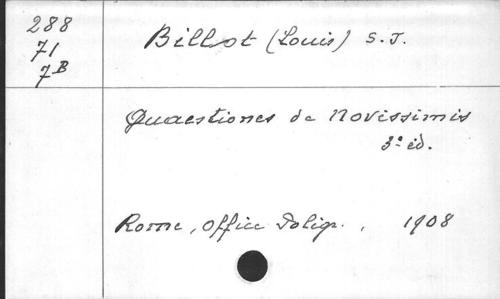 288
71
7B
Billot (Louis) S.J.
Quaestiones de Novissimis
3º éd.
Rome, Office Polig., 1908